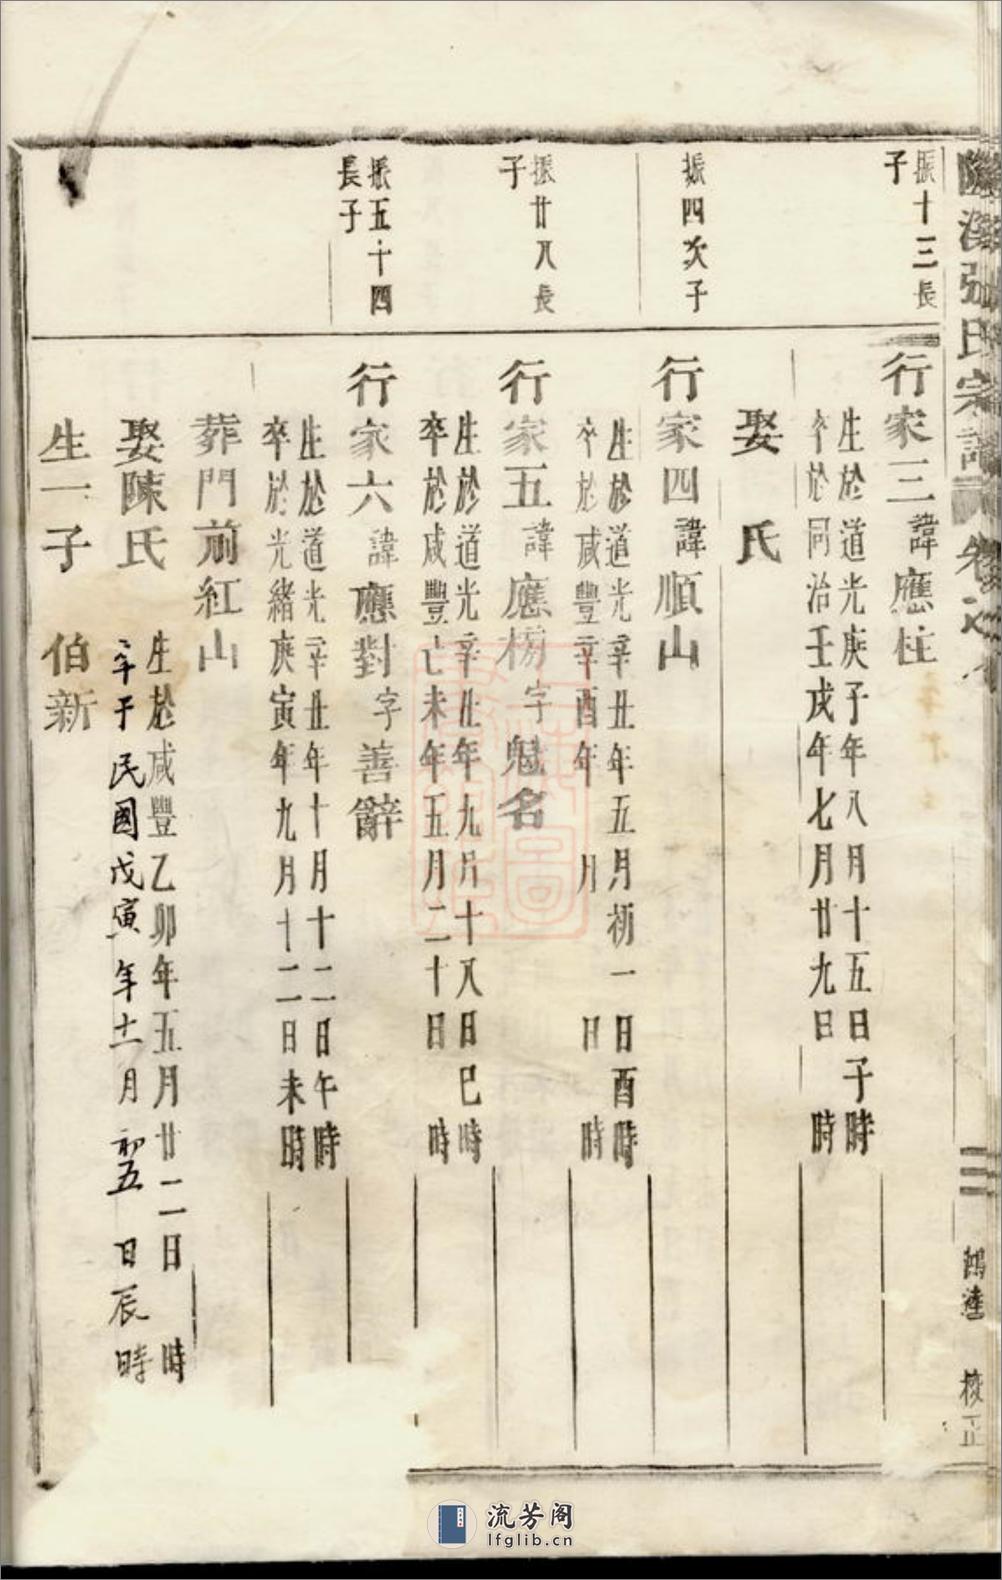 張氏宗譜
鴻逵 校正
振十三長
子
行家三諱應柱
生於道光庚子年八月十五日子時
卒於同治壬戌年七月廿九日 時
娶 氏
振四次子
行家四諱順山
生於道光辛丑年五月初一日酉時
卒於咸豐辛酉年 月 日 時
振廿八長
子
行家五諱應榜字魁名
生於道光辛丑年九月十八日巳時
卒於咸豐己未年五月二十日 時
振五十四
長子
行家六諱應對字善辭
生於道光辛丑年十月十二日午時
卒於光緒庚寅年九月十二日未時
葬門前紅山
娶陳氏
生於咸豐乙卯年五月廿二日 時
卒于民國戊寅年十一月初五日辰時
生一子 伯新
流芳阁
lfglib.cn